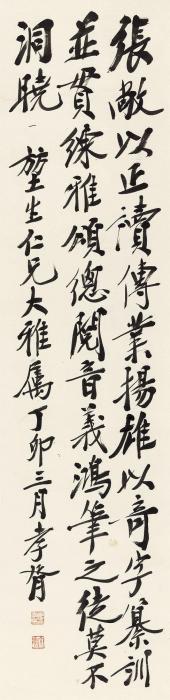 張敞以正讀傳業揚雄以奇字纂訓
並貫練雅頌總閱音義鴻筆之徒莫不
洞曉
堃生仁兄大雅屬丁卯三月孝胥